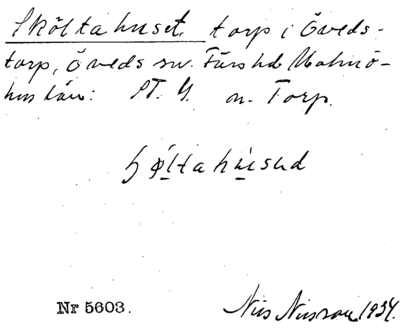 Sköltahuset. torp i Öveds-
torp, Öveds sn. Färs hd Malmö-
hus län: 
n. Torp.
ɧøltahúsəd
Nr 5603. Nils Nilsson 1934.